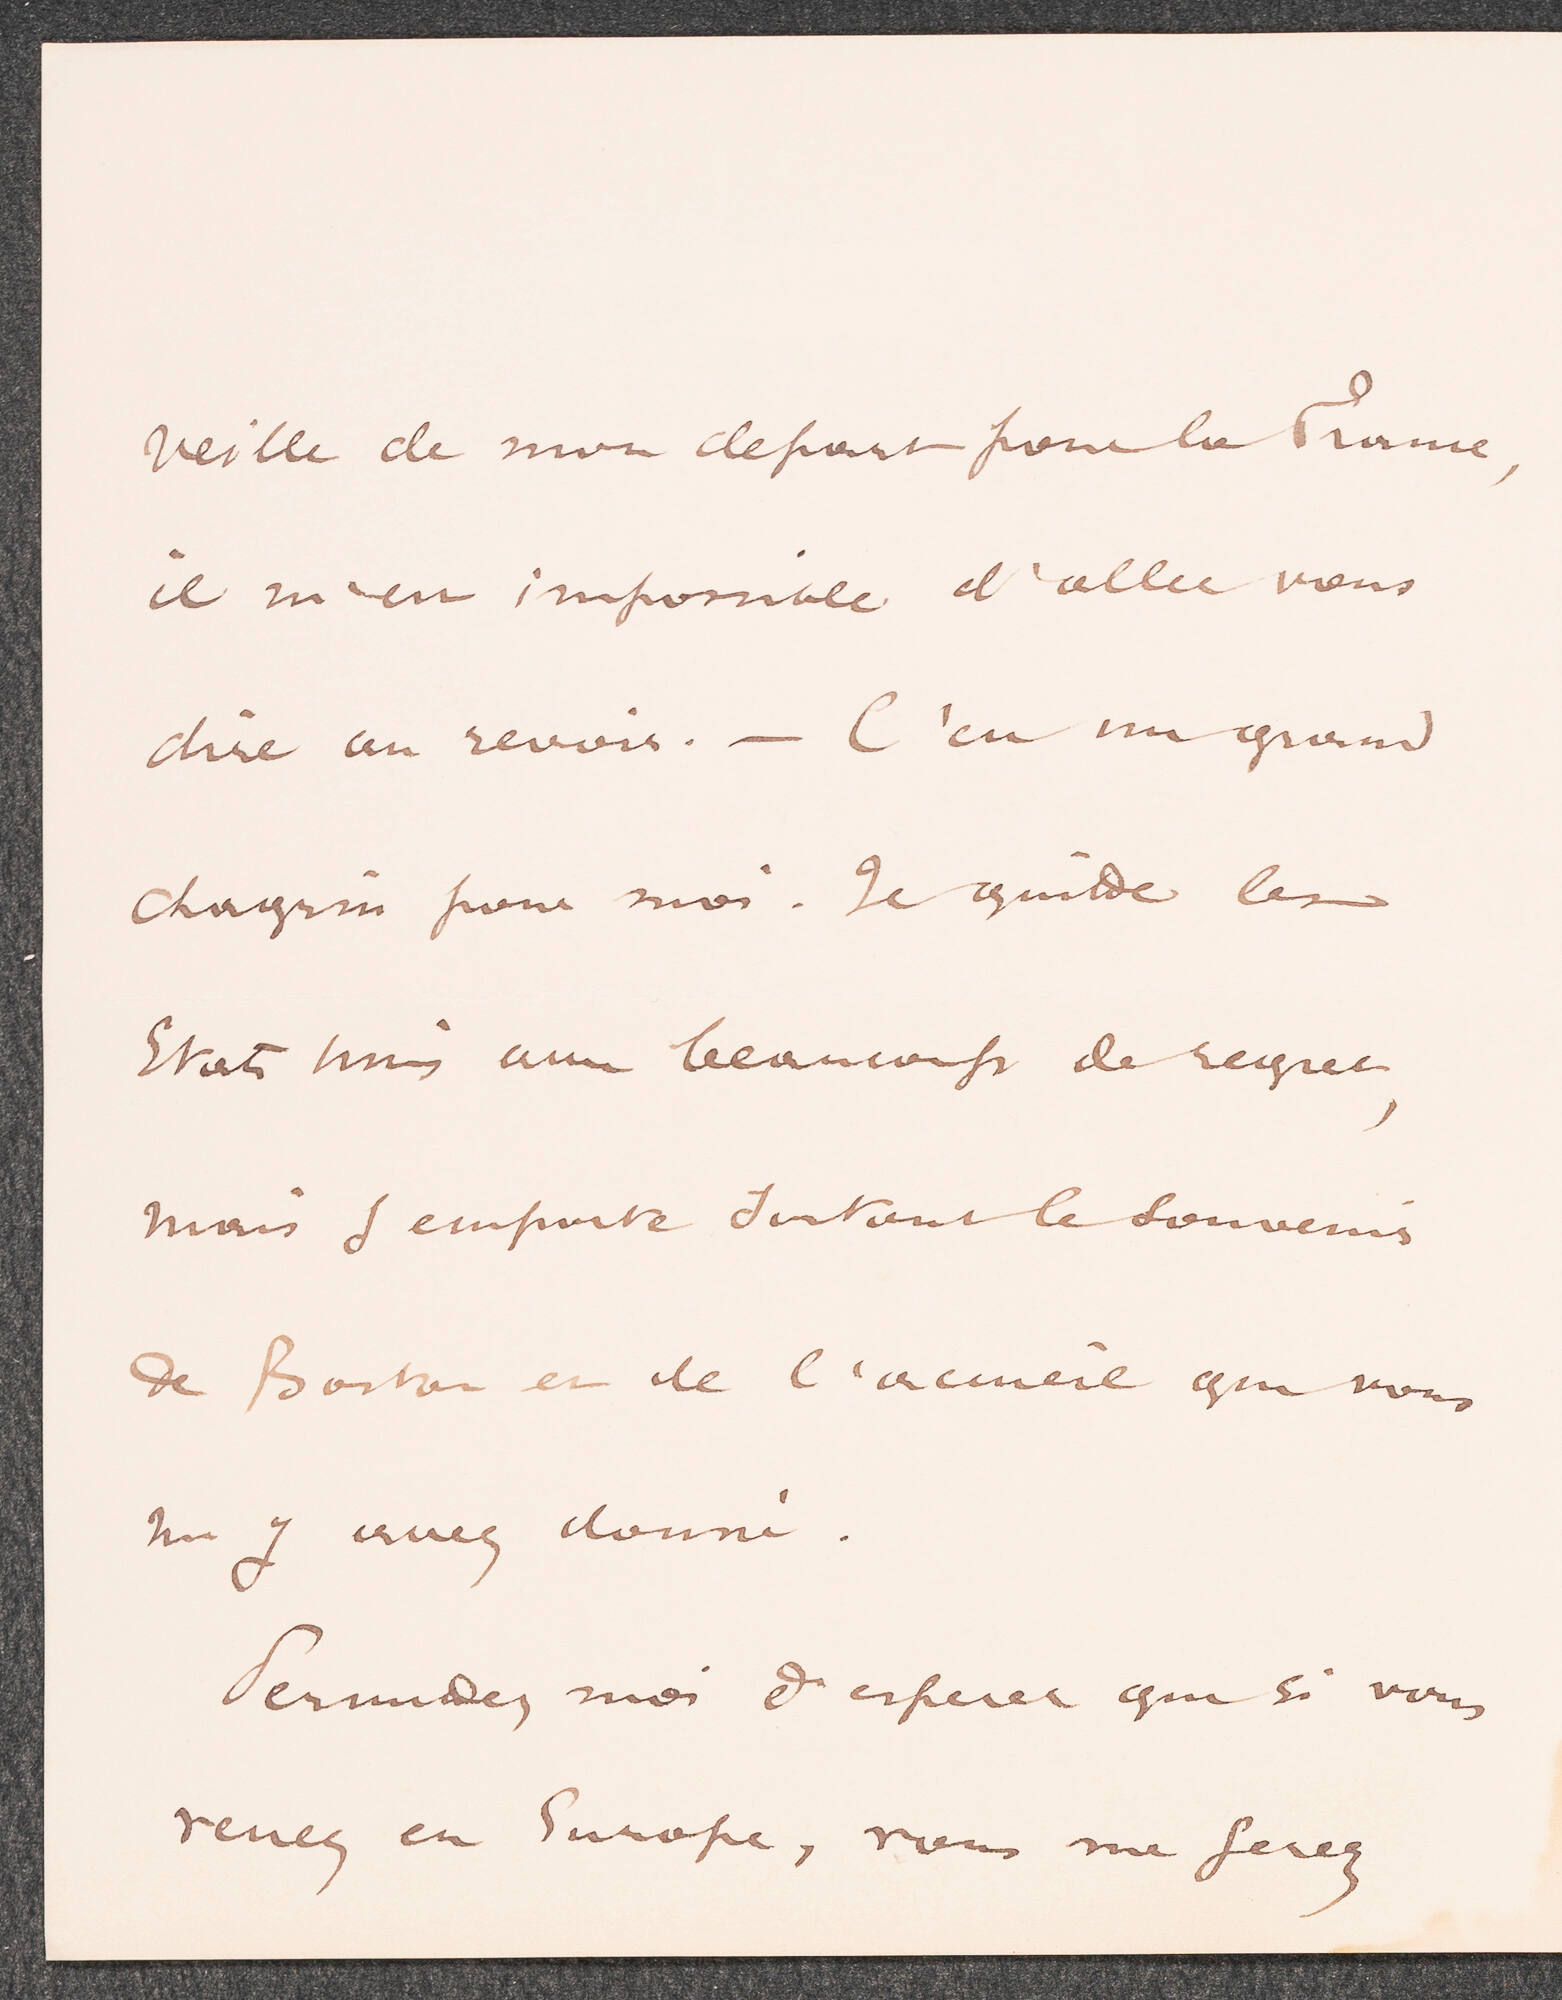 veille de mon depart pour la France,
il m'est impossible d'aller vous
dire au revoir. — C'est un grand
chagrin pour moi. Je quitte les
Etats Unis avec beaucoup de regret,
mais j emporte surtout le souvenir
de Boston et de l'accueil que vous
m y avez donné.
Permettez moi d'esperer que si vous
venez en Europe, vous me ferez